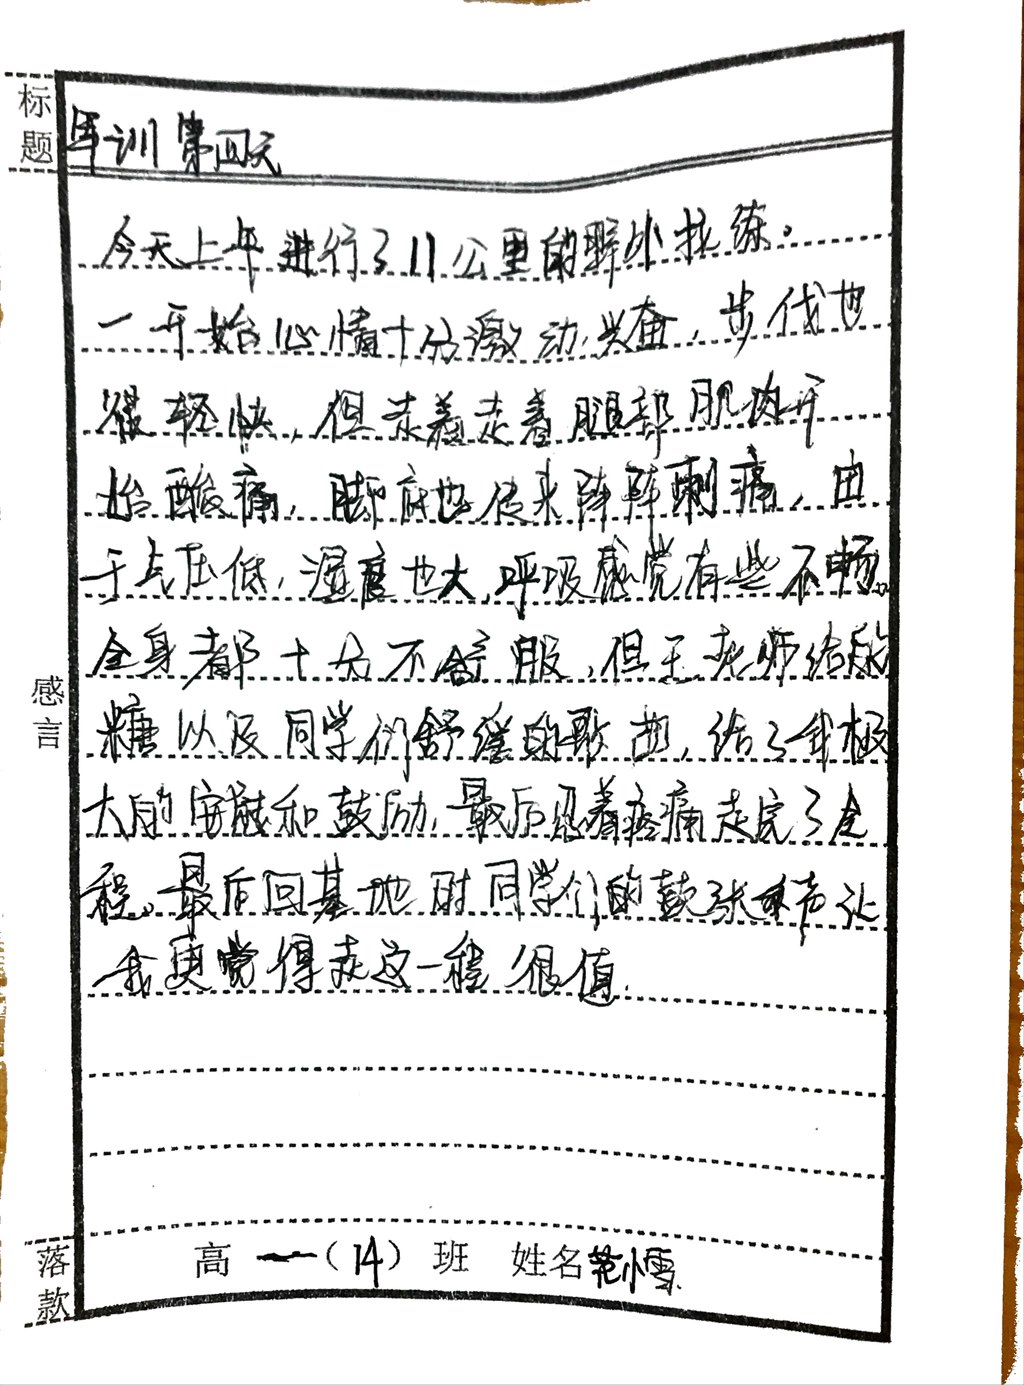 标题
军训第四天
今天上午进行了11公里的野外拉练。
一开始心情十分激动兴奋，步伐也
很轻快，但走着走着腿部肌肉开
始酸痛，脚底也传来阵阵刺痛，由
于气压低，湿度也大，呼吸感觉有些不畅。
全身都十分不舒服，但王老师给的
糖以及同学们舒缓的歌曲，给了我极
大的安慰和鼓励，最后忍着疼痛走完了全
程。最后回基地时同学们的鼓掌声让
我更觉得走这一程很值.
感言
落款
高一（14）班 姓名范小雪